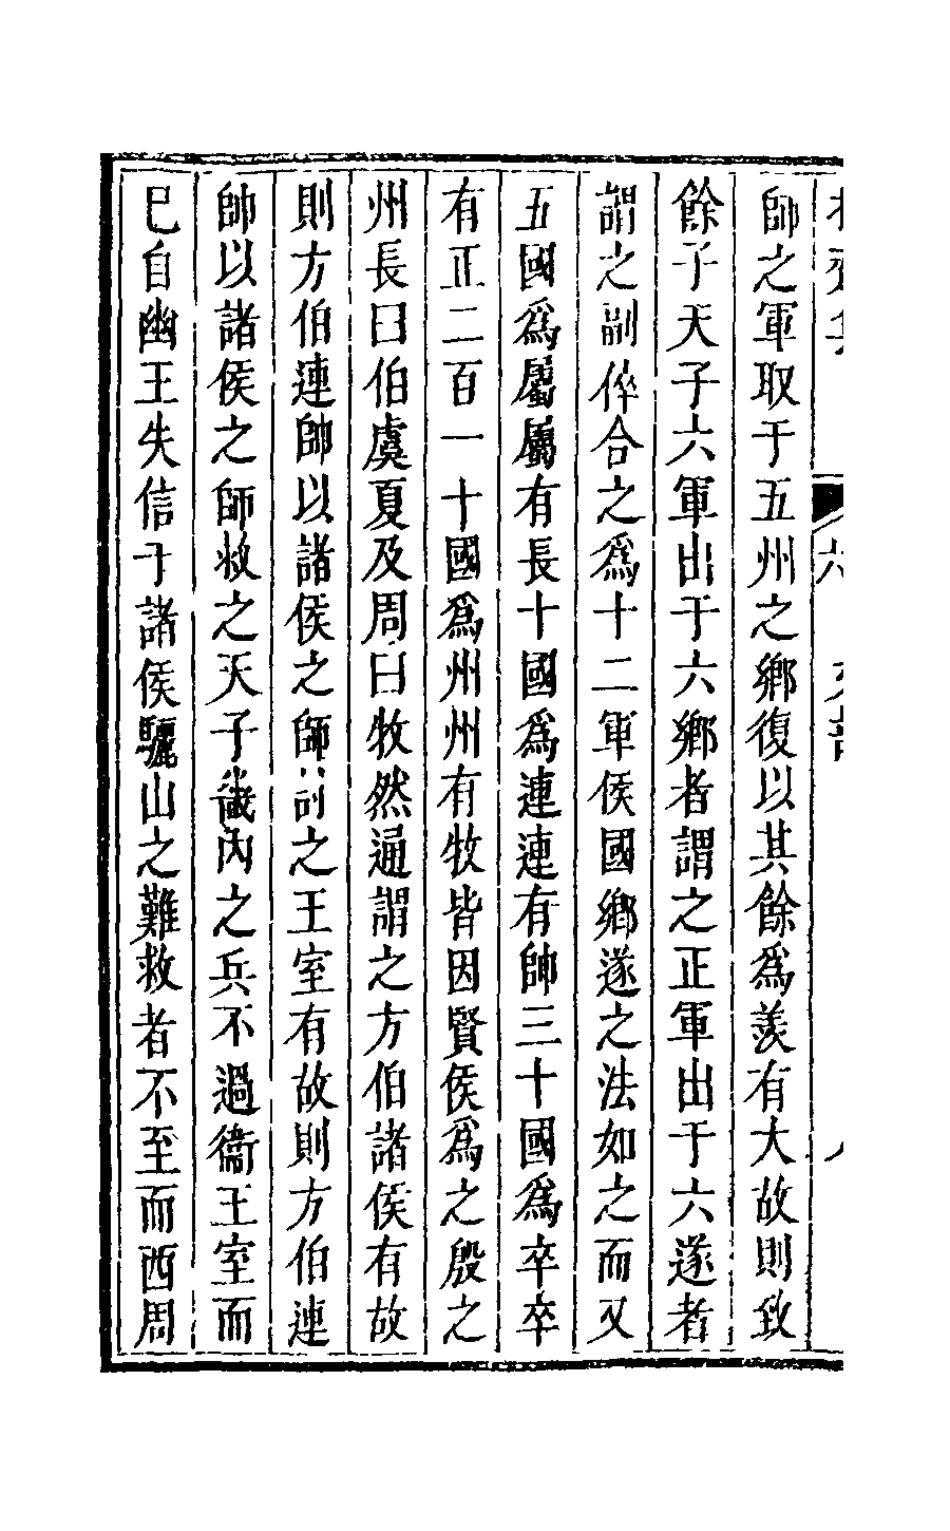 師之軍取于五州之鄉復以其餘爲羨有大故則致
餘子天子六軍出于六鄉者謂之正軍出于六遂者
謂之副倅合之爲十二軍侯國鄉遂之法如之而又
五國爲屬屬有長十國爲連連有帥三十國爲卒卒
有正二百一十國爲州州有牧皆因賢侯爲之殷之
州長曰伯虞夏及周曰牧然通謂之方伯諸侯有故
則方伯連帥以諸侯之師討之王室有故則方伯連
帥以諸侯之師救之天子畿內之兵不過衞王室而
已自幽王失信于諸侯驪山之難救者不至而西周